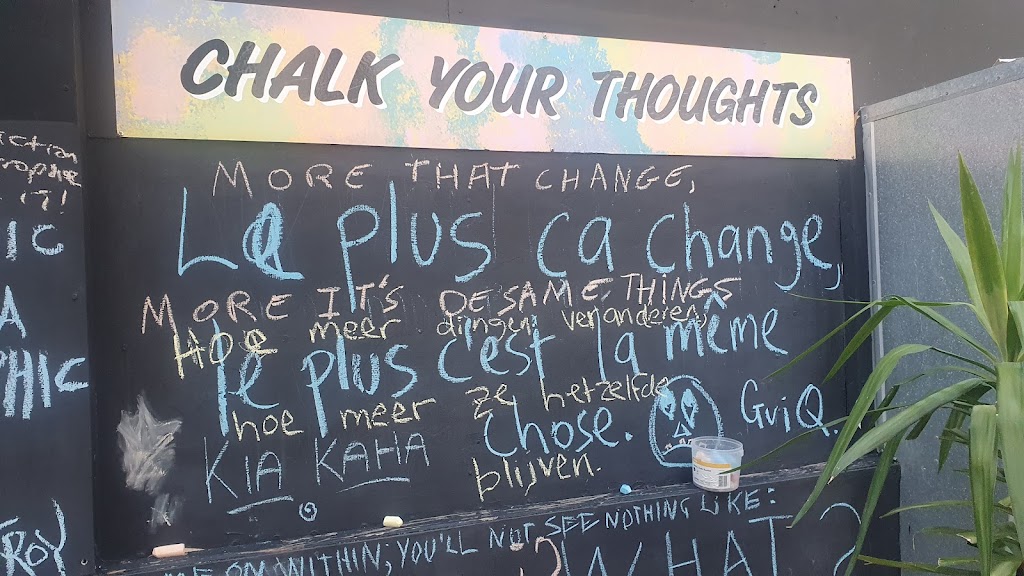 CHALK YOUR THOUGHTS
MORE THAT CHANGE,
La plus ca change,
MORE IT'S DE SAME THINGS
Hoe meer dingen veranderen,
le plus c'est la même
hoe meer ze hetzelfde
chose. GuiQ.
KIA KAHA
blijven.
ON WITHIN, YOU'LL NOT SEE NOTHING LIKE:
WHAT?
ction
IC
A
PHIC
TROY